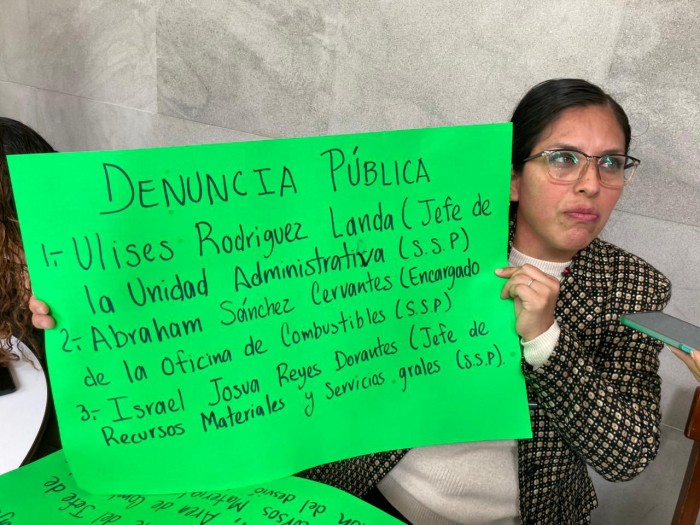 DENUNCIA PÚBLICA
1.- Ulises Rodriguez Landa (Jefe de
la Unidad Administrativa (S.S.P)
2.- Abraham Sánchez Cervantes (Encargado
de la oficina de Combustibles (S.S.P)
3.- Israel Josva Reyes Dorantes (Jefe de
Recursos Materiales y Servicios grales (S.S.P).
del desvío
Area de
del Jefe de